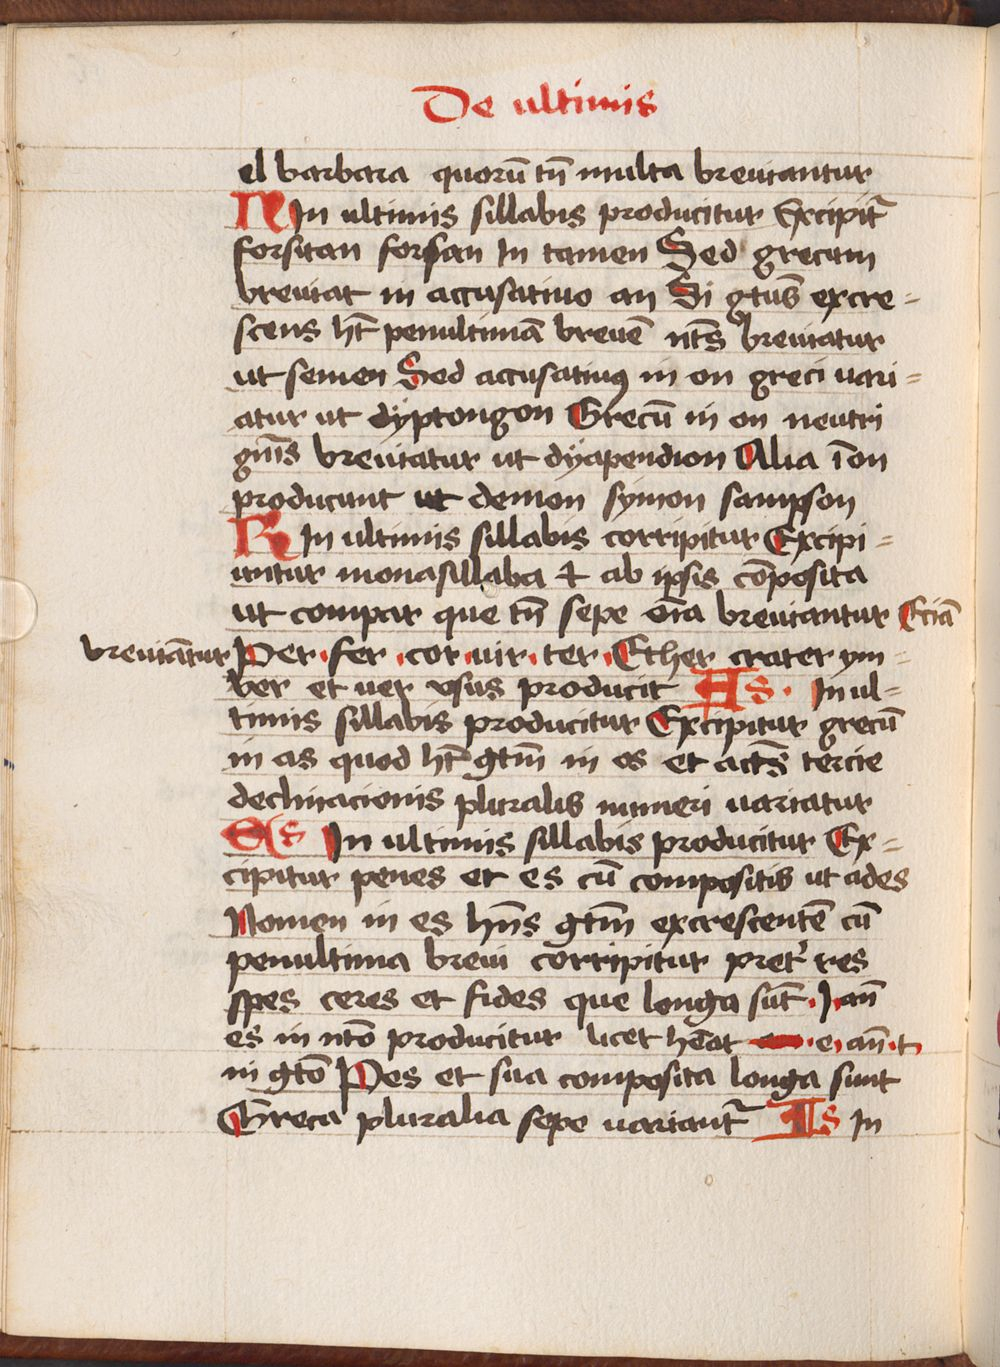 De ultimis
el barbara quorū tn̄ multa breuiantur
N In ultimis sillabis producitur Excipit᷑
forsitan forsan In tamen Sed grecum
breuiat in accusatiuo an Si gtūs excre=
scens ht̄ penultimā breuē nt̄s breuiatur
ut semen Sed accusatiuꝰ in on greci uari=
atur ut dÿptongon Grecū in on neutri
gn̄is breuitatur ut dÿapendion Alia ī on
producunt ut demon sÿmon sampson
R In ultimis sillabis corripitur Excipi=
untur monasillaba & ab ipsis cōposita
ut compar que tn̄ sepe oīa breuiantur Eciā
breuiātur Per · fer · cor · uir · ter · Ether crater ym=
ber et uer usus producit AS · In ul=
timis sillabis producitur Excipitur grecū
in as quod ht̄ gtm̄ in os et act̄s tercie
declinacionis pluralis numeri uariatur
ES In ultimis sillabis producitur Ex=
cipitur penes et es cū compositis ut ades
Nomen in es hn̄s gtm̄ excrescentē cū
penultima breui corripitur pret᷑ res
spes ceres et fides que longa sūt · I · an̄
es in ntō producitur licet hēat · e · an̄ · t ·
in gtō Pes et sua composita longa sunt
Greca pluralia sepe uariant᷑ IS In